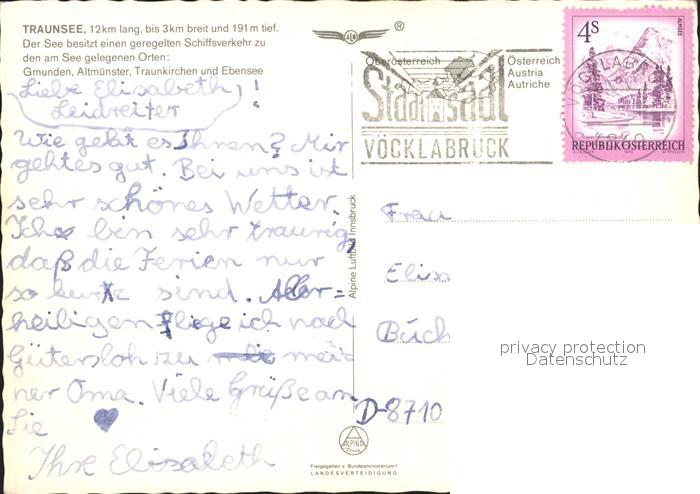 TRAUNSEE, 12km lang, bis 3km breit und 191m tief.
Der See besitzt einen geregelten Schiffsverkehr zu
den am See gelegenen Orten:
Gmunden, Altmünster, Traunkirchen und Ebensee
Liebe Elisabeth
Leidreiter!
Wie geht es Ihnen? Mir
gehtes gut. Bei uns ist
sehr schönes Wetter.
Ich bin sehr traurig,
daß die Ferien nur
so kurz sind. Aller=
heiligen fliege ich nach
Gütersloh zu mei
ner Oma. Viele Grüße an
Sie
Ihre Elisabeth
Alpine Luftbild Innsbruck
®
Oberösterreich
Stadt
VÖCKLABRUCK
Österreich
Austria
Autriche
4S
ALMSEE
VÖCKLABRUCK
REPUBLIK ÖSTERREICH
Frau
Elisa
Büch
D-8710
privacy protection
Datenschutz
ALPINE
Freigegeben v. Bundesministerium f.
LANDESVERTEIDIGUNG